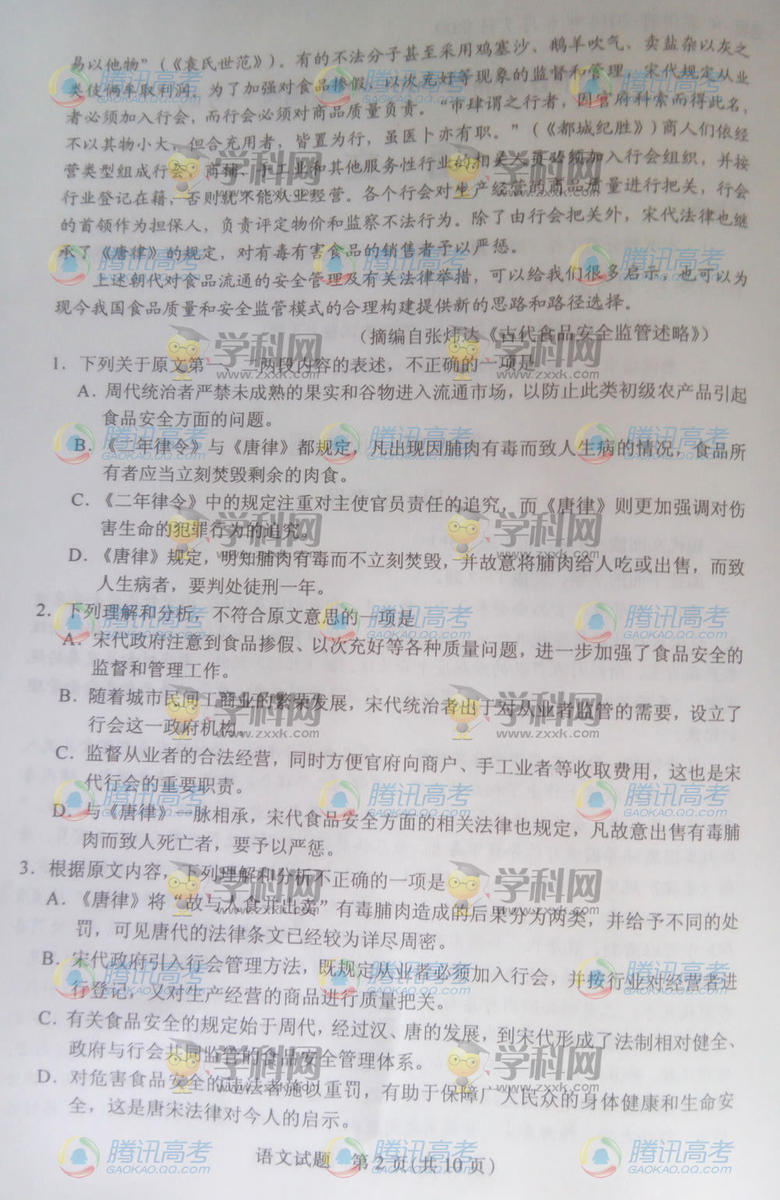 易以他物”(《袁氏世范》)。有的不法分子甚至采用鸡塞沙、鹅羊吹气、卖盐杂以灰之
类伎俩牟取利润。为了加强对食品掺假、以次充好等现象的监督和管理，宋代规定从业
者必须加入行会，而行会必须对商品质量负责。“市肆谓之行者，因官府科索而得此名，
不以其物小大，但合充用者，皆置为行，虽医卜亦有职。”(《都城纪胜》)商人们依经
营类型组成行会，商铺、手工业和其他服务性行业的相关人员必须加入行会组织，并按
行业登记在籍，否则就不能从业经营。各个行会对生产经营的商品质量进行把关，行会
的首领作为担保人，负责评定物价和监察不法行为。除了由行会把关外，宋代法律也继
承了《唐律》的规定，对有毒有害食品的销售者予以严惩。
上述朝代对食品流通的安全管理及有关法律举措，可以给我们很多启示，也可以为
现今我国食品质量和安全监管模式的合理构建提供新的思路和路径选择。
(摘编自张炜达《古代食品安全监管述略》)
1．下列关于原文第一、二两段内容的表述，不正确的一项是
A．周代统治者严禁未成熟的果实和谷物进入流通市场，以防止此类初级农产品引起
食品安全方面的问题。
B．《二年律令》与《唐律》都规定，凡出现因脯肉有毒而致人生病的情况，食品所
有者应当立刻焚毁剩余的肉食。
C．《二年律令》中的规定注重对主使官员责任的追究，而《唐律》则更加强调对伤
害生命的犯罪行为的追究。
D．《唐律》规定，明知脯肉有毒而不立刻焚毁，并故意将脯肉给人吃或出售，而致
人生病者，要判处徒刑一年。
2．下列理解和分析，不符合原文意思的一项是
A．宋代政府注意到食品掺假、以次充好等各种质量问题，进一步加强了食品安全的
监督和管理工作。
B．随着城市民间工商业的繁荣发展，宋代统治者出于对从业者监管的需要，设立了
行会这一政府机构。
C．监督从业者的合法经营，同时方便官府向商户、手工业者等收取费用，这也是宋
代行会的重要职责。
D．与《唐律》一脉相承，宋代食品安全方面的相关法律也规定，凡故意出售有毒脯
肉而致人死亡者，要予以严惩。
3．根据原文内容，下列理解和分析不正确的一项是
A．《唐律》将“故与人食并出卖”有毒脯肉造成的后果分为两类，并给予不同的处
罚，可见唐代的法律条文已经较为详尽周密。
B．宋代政府引入行会管理方法，既规定从业者必须加入行会，并按行业对经营者进
行登记，又对生产经营的商品进行质量把关。
C．有关食品安全的规定始于周代，经过汉、唐的发展，到宋代形成了法制相对健全、
政府与行会共同监管的食品安全管理体系。
D．对危害食品安全的违法者施以重罚，有助于保障广大民众的身体健康和生命安
全，这是唐宋法律对今人的启示。
语文试题 第2页(共10页)